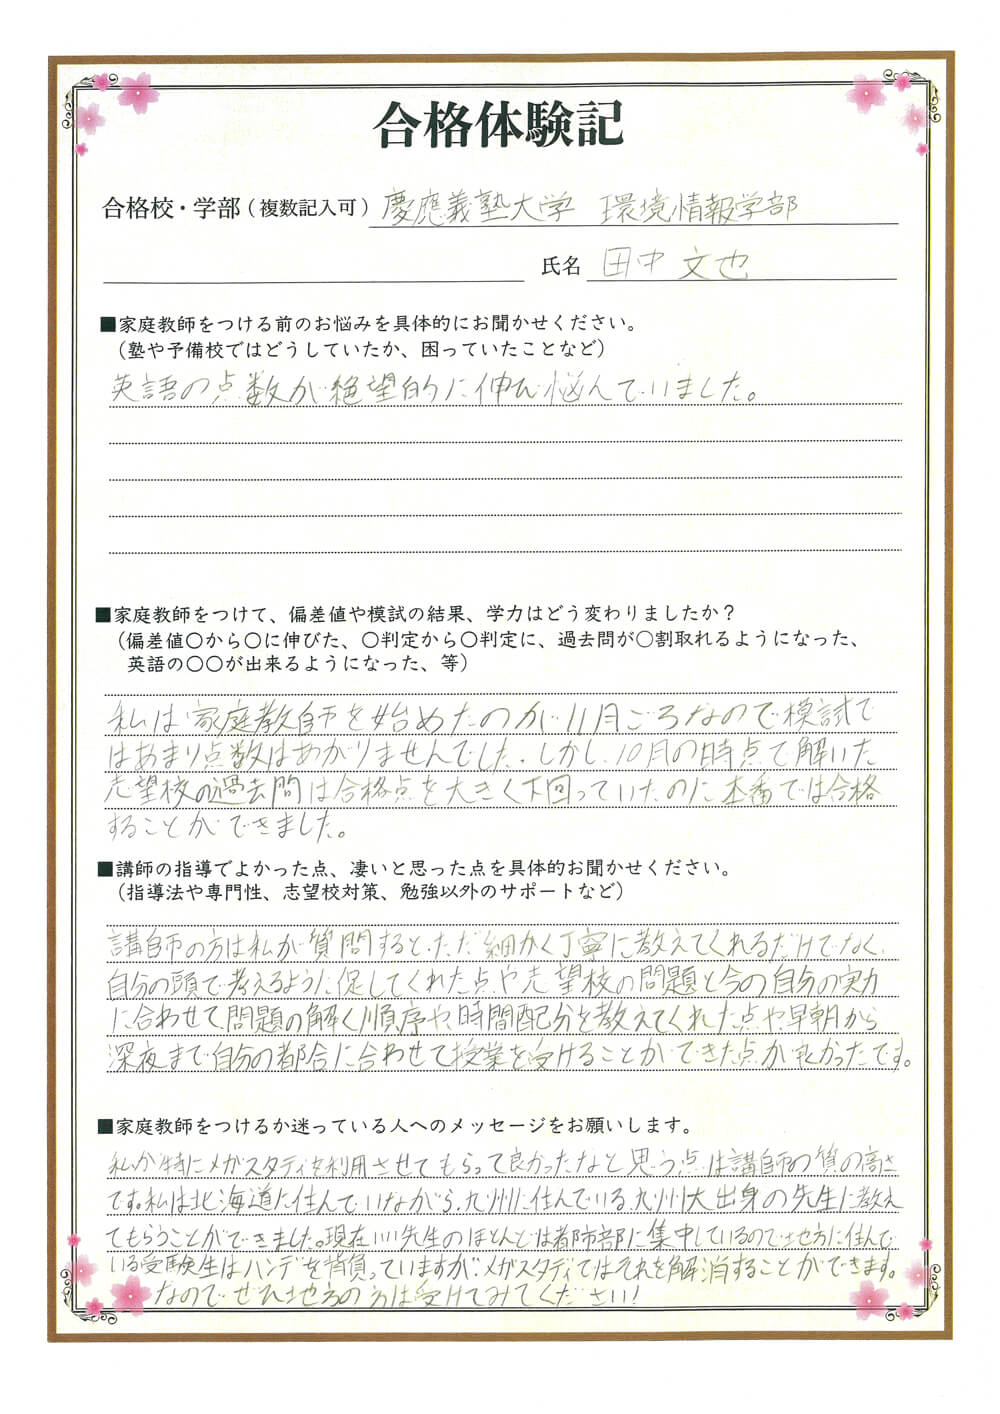 合格体験記
合格校・学部（複数記入可） 慶應義塾大学 環境情報学部
氏名 田中 文也
■家庭教師をつける前のお悩みを具体的にお聞かせください。
（塾や予備校ではどうしていたか、困っていたことなど）
英語の点数が絶望的に伸び悩んでいました。
■家庭教師をつけて、偏差値や模試の結果、学力はどう変わりましたか？
（偏差値〇から〇に伸びた、〇判定から〇判定に、過去問が〇割取れるようになった、
英語の〇〇が出来るようになった、等）
私は家庭教師を始めたのが11月ごろなので模試で
はあまり点数はあがりませんでした。しかし、10月の時点で解いた
志望校の過去問は合格点を大きく下回っていたのに本番では合格
することができました。
■講師の指導でよかった点、凄いと思った点を具体的お聞かせください。
（指導法や専門性、志望校対策、勉強以外のサポートなど）
講師の方は私が質問すると、ただ細かく丁寧に教えてくれるだけでなく、
自分の頭で考えるように促してくれた点や志望校の問題と今の自分の実力
に合わせて問題の解く順序や、時間配分を教えてくれた点や早朝から
深夜まで自分の都合に合わせて授業を受けることができた点が良かったです。
■家庭教師をつけるか迷っている人へのメッセージをお願いします。
私が特にメガスタディを利用させてもらって良かったなと思う点は講師の質の高さ
です。私は北海道に住んでいながら、九州に住んでいる九州大出身の先生に教え
てもらうことができました。現在いい先生のほとんどは都市部に集中しているので地方に住んで
いる受験生はハンデを背負っていますが、メガスタディではそれを解消することができます。
なのでぜひ地方の方は受けてみてください！